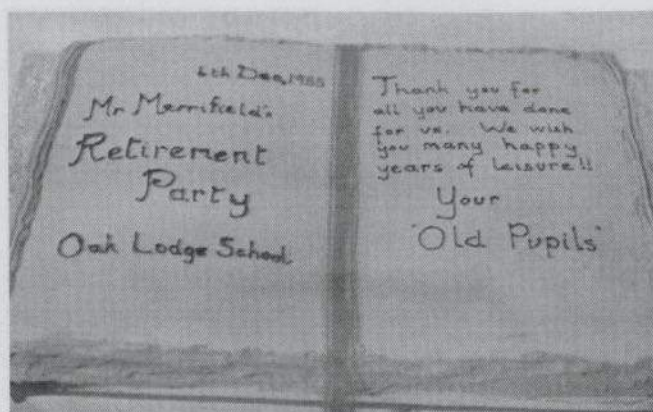 6th Dec, 1985
Mr Merrifield's
Retirement
Party
Oak Lodge School
Thank you for
all you have done
for us. We wish
you many happy
years of leisure!!
Your
'Old Pupils'